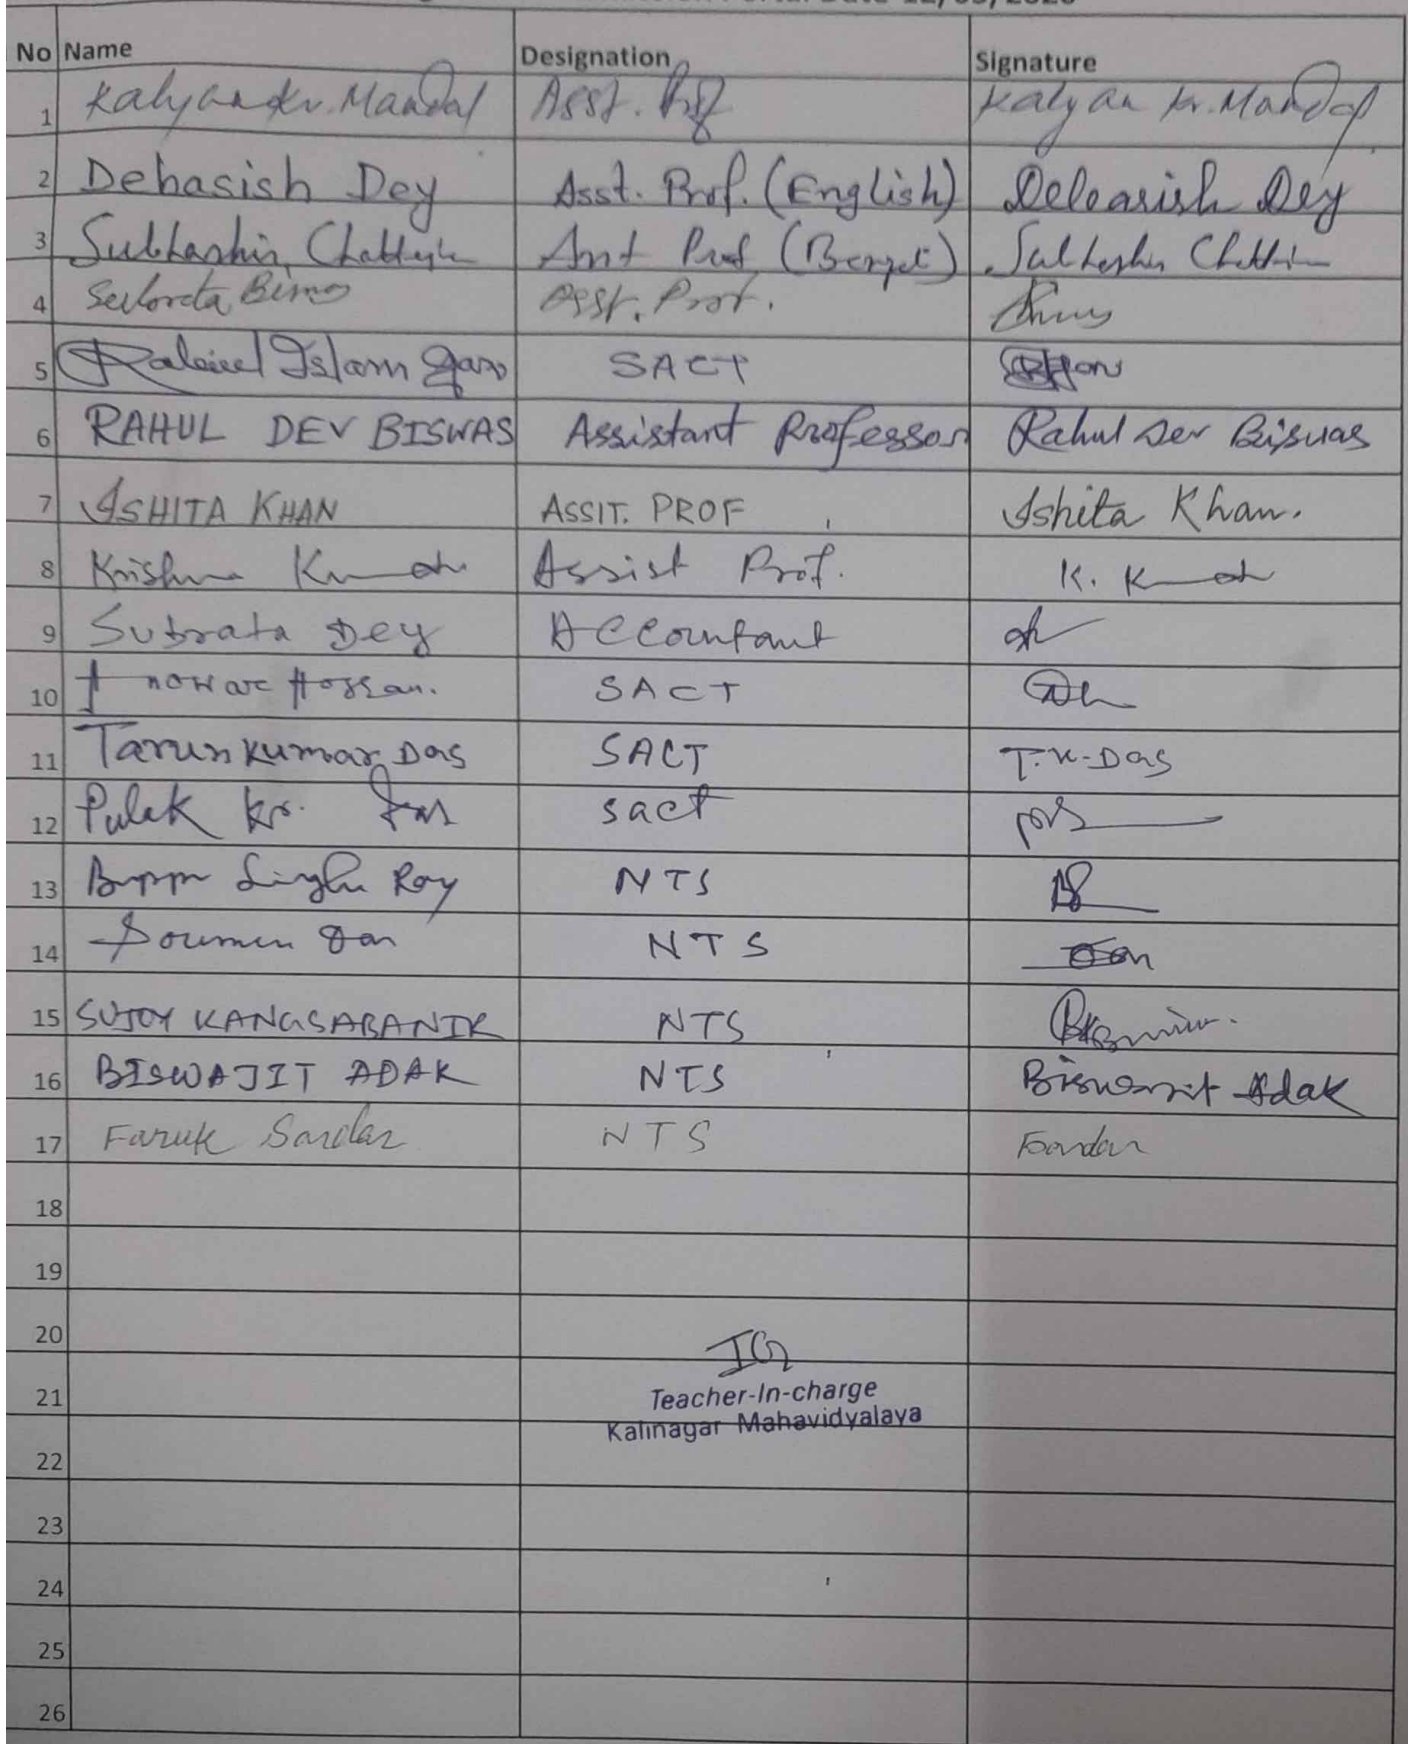 Portal Date
No Name Designation Signature
1 Kalyan Kr. Mandal Asst. Prof Kalyan Kr. Mandal
2 Debasish Dey Asst. Prof. (English) Debasish Dey
3 Subhashis Asst Prof (Bengali) Subhashis
4 Asst. Prof.
5 Islam SACT
6 RAHUL DEV BISWAS Assistant Professor Rahul Dev Biswas
7 ISHITA KHAN ASSIT. PROF Ishita Khan.
8 Krishna Assist Prof. K.
9 Subrata Dey Accountant
10 SACT
11 Tarun Kumar Das SACT T.K-Das
12 Pulak Kr. Das sact
13 Singha Roy NTS
14 Soumen NTS
15 SUJOY KANGSABANIK NTS
16 BISWAJIT ADAK NTS Biswajit Adak
17 Faruk Sardar NTS
18
19
20
21 Teacher-In-charge
Kalinagar Mahavidyalaya
22
23
24
25
26